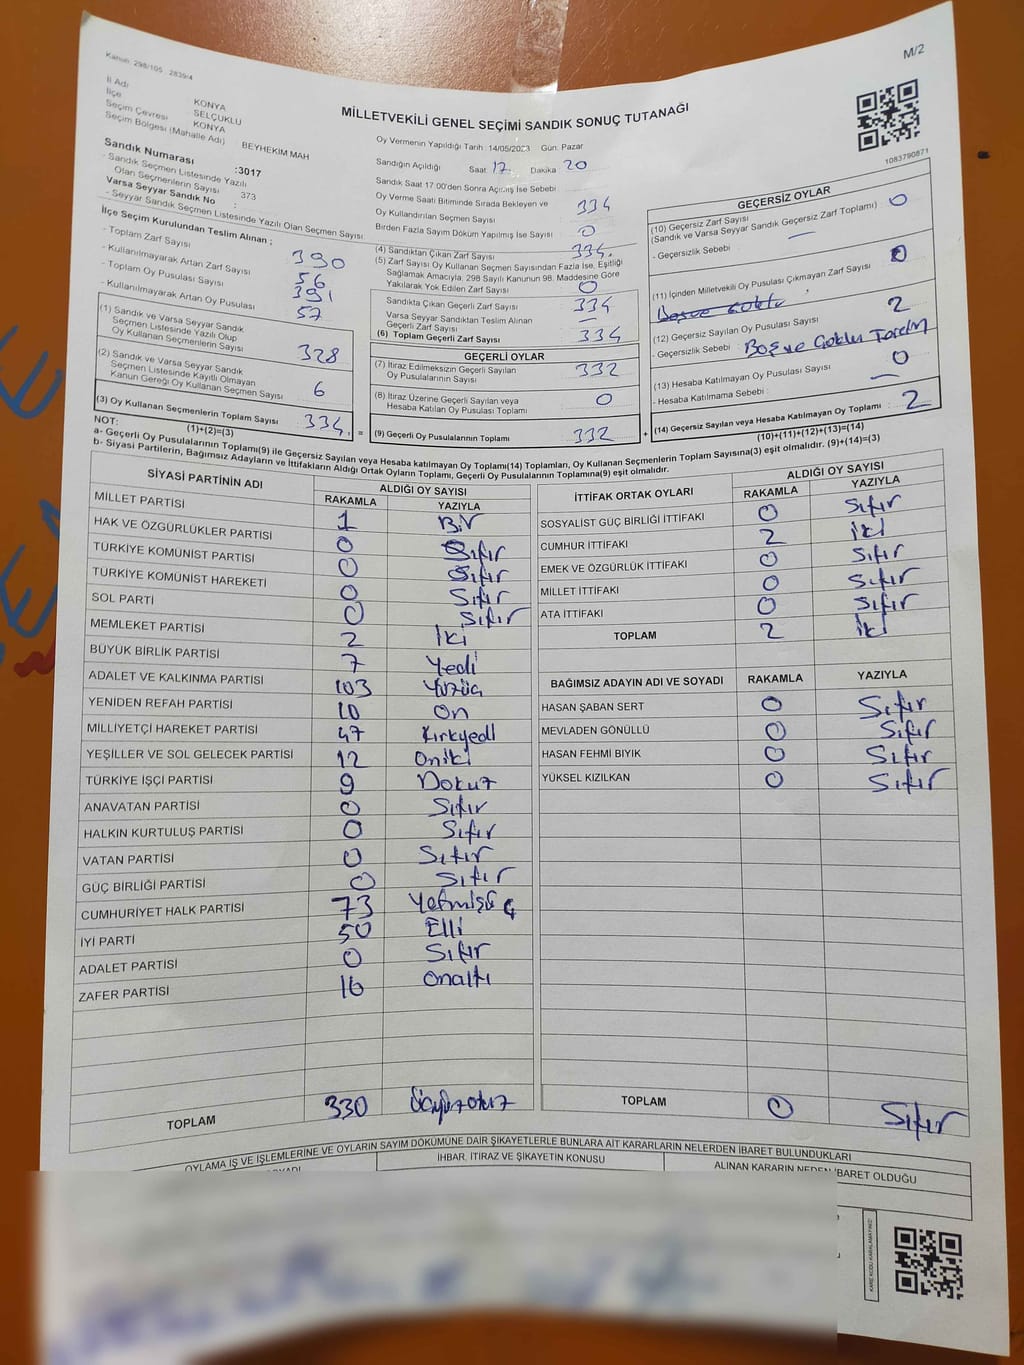 Kanun: 298/105 2839/4
M/2
İl Adı KONYA
İlçe SELÇUKLU
Seçim Çevresi KONYA
Seçim Bölgesi (Mahalle Adı) BEYHEKIM MAH
MİLLETVEKİLİ GENEL SEÇİMİ SANDIK SONUÇ TUTANAĞI
Oy Vermenin Yapıldığı Tarih: 14/05/2023 Gün: Pazar
1083790871
Sandık Numarası :3017
- Sandık Seçmen Listesinde Yazılı Olan Seçmenlerin Sayısı 373
Varsa Seyyar Sandık No :
- Seyyar Sandık Seçmen Listesinde Yazılı Olan Seçmen Sayısı
İlçe Seçim Kurulundan Teslim Alınan ;
- Toplam Zarf Sayısı 390
- Kullanılmayarak Artan Zarf Sayısı 56
- Toplam Oy Pusulası Sayısı 391
- Kullanılmayarak Artan Oy Pusulası 57
(1) Sandık ve Varsa Seyyar Sandık
Seçmen Listesinde Yazılı Olup
Oy Kullanan Seçmenlerin Sayısı 328
(2) Sandık ve Varsa Seyyar Sandık
Seçmen Listesinde Kayıtlı Olmayan
Kanun Gereği Oy Kullanan Seçmen Sayısı 6
(3) Oy Kullanan Seçmenlerin Toplam Sayısı 334
(1)+(2)=(3)
Sandığın Açıldığı Saat 17 Dakika 20
Sandık Saat 17.00'den Sonra Açılmış İse Sebebi
Oy Verme Saati Bitiminde Sırada Bekleyen ve
Oy Kullandırılan Seçmen Sayısı 334
Birden Fazla Sayım Döküm Yapılmış İse Sayısı 0
(4) Sandıktan Çıkan Zarf Sayısı 334
(5) Zarf Sayısı Oy Kullanan Seçmen Sayısından Fazla İse, Eşitliği
Sağlamak Amacıyla, 298 Sayılı Kanunun 98. Maddesine Göre
Yakılarak Yok Edilen Zarf Sayısı 0
Sandıkta Çıkan Geçerli Zarf Sayısı 334
Varsa Seyyar Sandıktan Teslim Alınan
Geçerli Zarf Sayısı
(6) Toplam Geçerli Zarf Sayısı 334
GEÇERLİ OYLAR
(7) İtiraz Edilmeksizin Geçerli Sayılan
Oy Pusulalarının Sayısı 332
(8) İtiraz Üzerine Geçerli Sayılan veya
Hesaba Katılan Oy Pusulası Toplamı 0
= (9) Geçerli Oy Pusulalarının Toplamı 332
GEÇERSİZ OYLAR
(10) Geçersiz Zarf Sayısı
(Sandık ve Varsa Seyyar Sandık Geçersiz Zarf Toplamı) 0
- Geçersizlik Sebebi : —
(11) İçinden Milletvekili Oy Pusulası Çıkmayan Zarf Sayısı 0
(12) Geçersiz Sayılan Oy Pusulası Sayısı 2
- Geçersizlik Sebebi : Boş ve Çoklu Tercih
(13) Hesaba Katılmayan Oy Pusulası Sayısı 0
- Hesaba Katılmama Sebebi : —
+ (14) Geçersiz Sayılan veya Hesaba Katılmayan Oy Toplamı : 2
(10)+(11)+(12)+(13)=(14)
NOT:
a- Geçerli Oy Pusulalarının Toplamı(9) ile Geçersiz Sayılan veya Hesaba katılmayan Oy Toplamı(14) Toplamları, Oy Kullanan Seçmenlerin Toplam Sayısına(3) eşit olmalıdır. (9)+(14)=(3)
b- Siyasi Partilerin, Bağımsız Adayların ve İttifakların Aldığı Ortak Oyların Toplamı, Geçerli Oy Pusulalarının Toplamına(9) eşit olmalıdır.
SİYASİ PARTİNİN ADI ALDIĞI OY SAYISI
RAKAMLA YAZIYLA
MİLLET PARTİSİ 1 Bir
HAK VE ÖZGÜRLÜKLER PARTİSİ 0 Sıfır
TÜRKİYE KOMÜNİST PARTİSİ 0 Sıfır
TÜRKİYE KOMÜNİST HAREKETİ 0 Sıfır
SOL PARTİ 0 Sıfır
MEMLEKET PARTİSİ 2 İki
BÜYÜK BİRLİK PARTİSİ 7 Yedi
ADALET VE KALKINMA PARTİSİ 103 Yüzüç
YENİDEN REFAH PARTİSİ 10 On
MİLLİYETÇİ HAREKET PARTİSİ 47 Kırkyedi
YEŞİLLER VE SOL GELECEK PARTİSİ 12 Oniki
TÜRKİYE İŞÇİ PARTİSİ 9 Dokuz
ANAVATAN PARTİSİ 0 Sıfır
HALKIN KURTULUŞ PARTİSİ 0 Sıfır
VATAN PARTİSİ 0 Sıfır
GÜÇ BİRLİĞİ PARTİSİ 0 Sıfır
CUMHURİYET HALK PARTİSİ 73 Yetmişüç
İYİ PARTİ 50 Elli
ADALET PARTİSİ 0 Sıfır
ZAFER PARTİSİ 16 Onaltı
TOPLAM 330 Üçyüzotuz
İTTİFAK ORTAK OYLARI ALDIĞI OY SAYISI
RAKAMLA YAZIYLA
SOSYALİST GÜÇ BİRLİĞİ İTTİFAKI 0 Sıfır
CUMHUR İTTİFAKI 2 İki
EMEK VE ÖZGÜRLÜK İTTİFAKI 0 Sıfır
MİLLET İTTİFAKI 0 Sıfır
ATA İTTİFAKI 0 Sıfır
TOPLAM 2 İki
BAĞIMSIZ ADAYIN ADI VE SOYADI RAKAMLA YAZIYLA
HASAN ŞABAN SERT 0 Sıfır
MEVLADEN GÖNÜLLÜ 0 Sıfır
HASAN FEHMİ BIYIK 0 Sıfır
YÜKSEL KIZILKAN 0 Sıfır
TOPLAM 0 Sıfır
OYLAMA İŞ VE İŞLEMLERİNE VE OYLARIN SAYIM DÖKÜMÜNE DAİR ŞİKAYETLERLE BUNLARA AİT KARARLARIN NELERDEN İBARET BULUNDUKLARI
İHBAR, İTİRAZ VE ŞİKAYETİN KONUSU
ALINAN KARARIN NEDEN İBARET OLDUĞU
KARE KODU KARALAMAYINIZ!